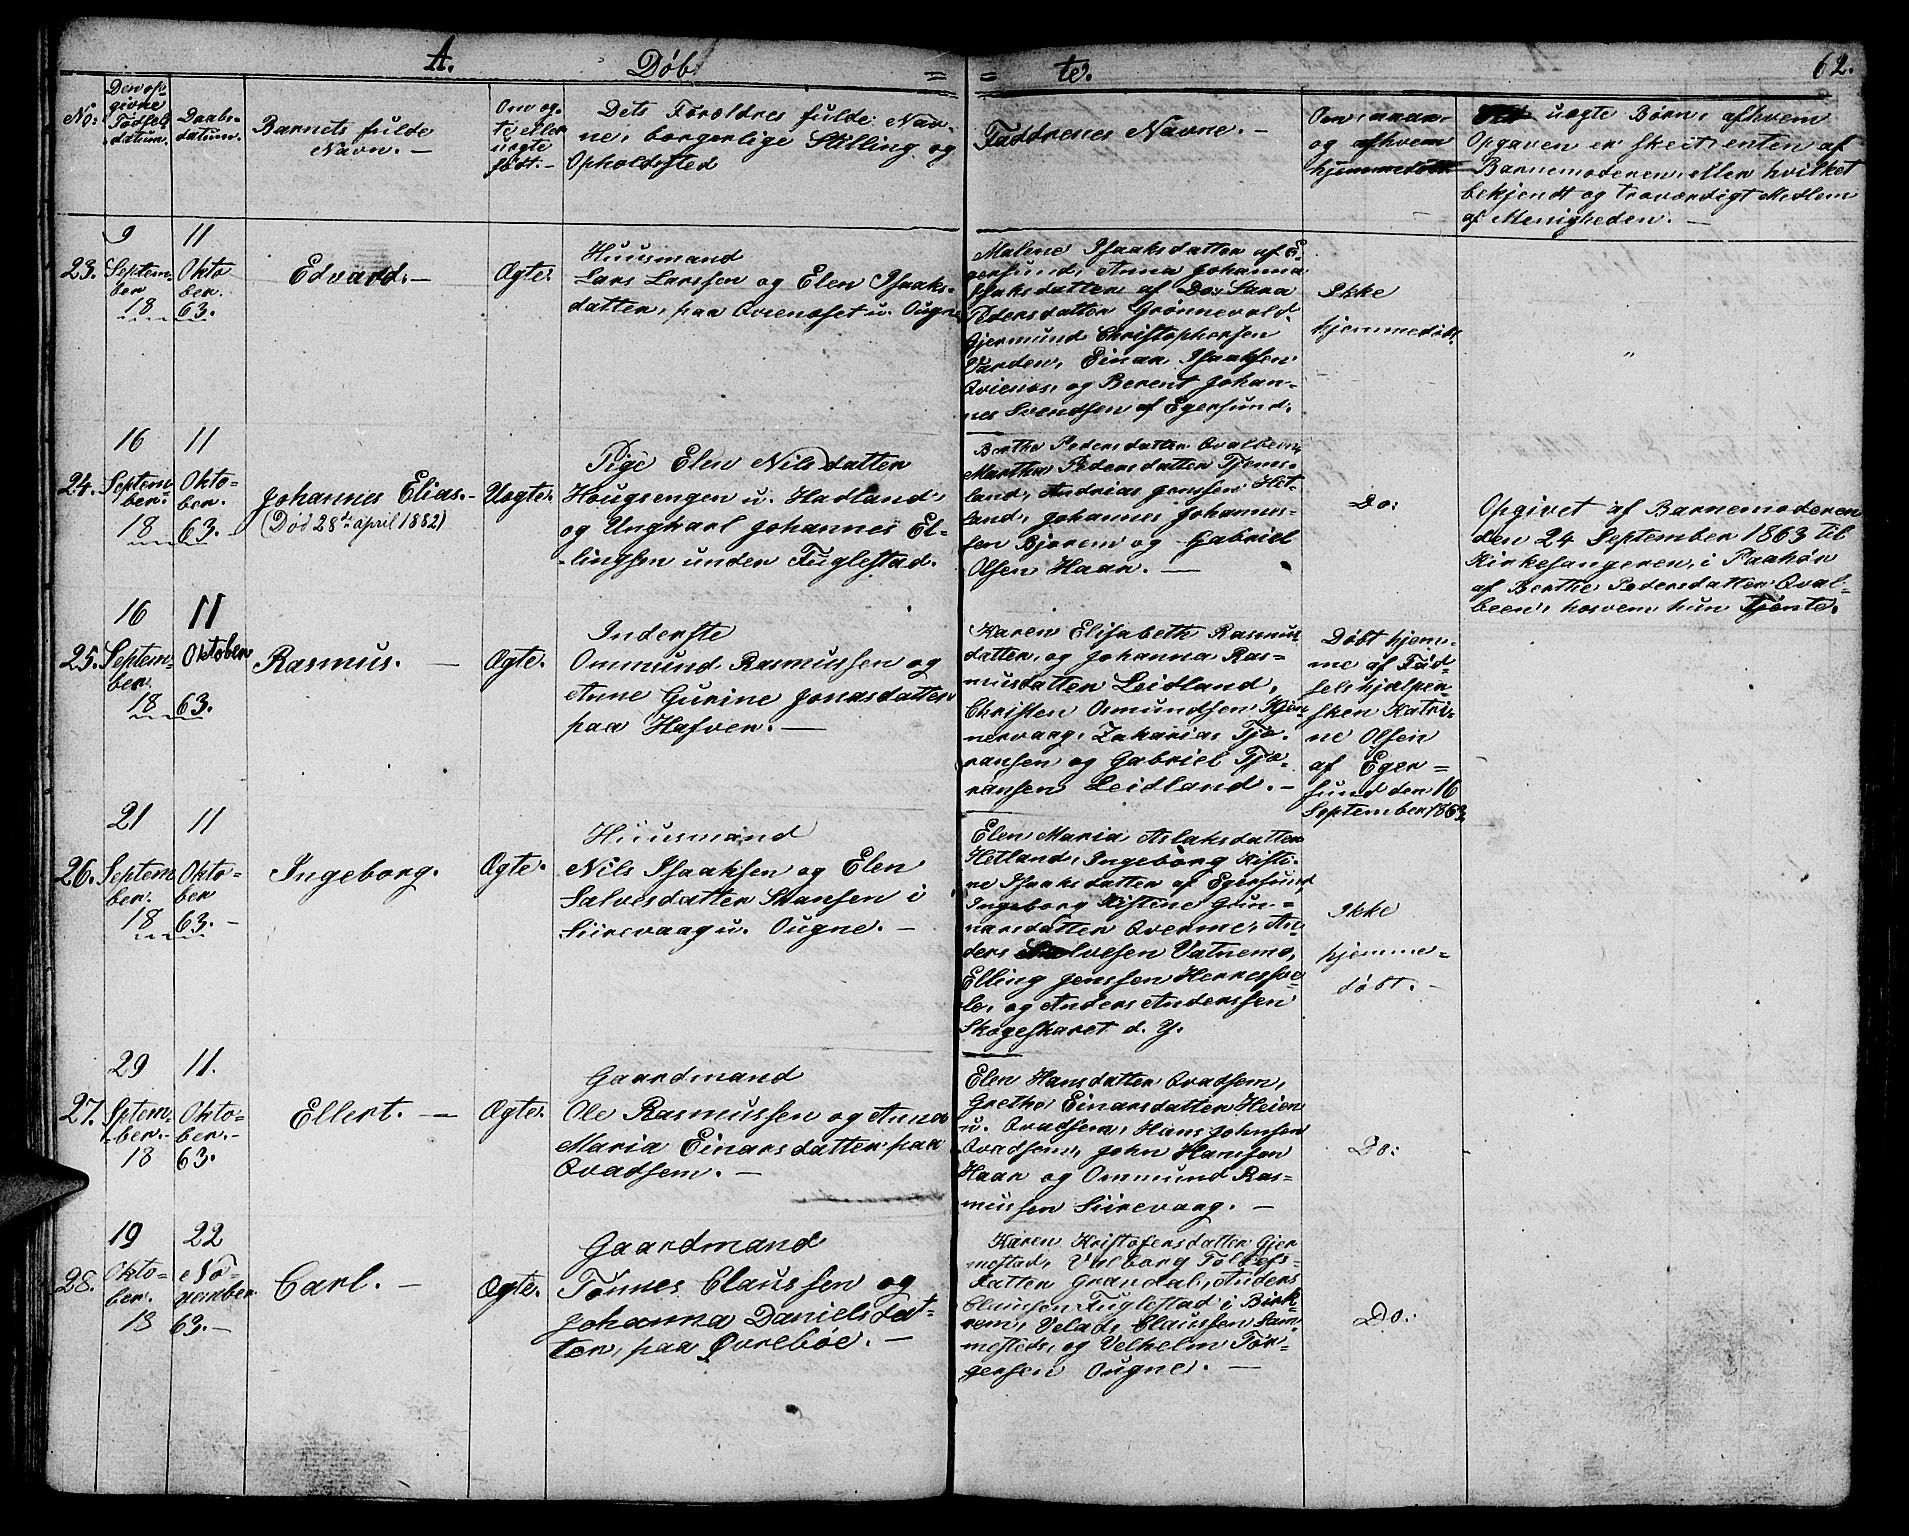 A.
Døb = = te.
62.
No:
Den op-
givne
Fødsels
datum.
Daabs-
datum.
Barnets fulde
Navn. —
Om æg-
te eller
uægte
født. —
Dets Forældres fulde Nav-
ne, borgerlige Stilling og
Opholdsted
Faddrenes Navne. —
Om, naar
og afhvem
hjemmedøbt
Ved uægte Børn, afhvem
Opgaven er skeet, enten af
Barnemoderen, eller hvilket
bekjendt og troværdigt Medlem
af Menigheden. —
23.
9
Septem-
ber
18
11
Okto
ber.
63.
Edvard. —
Ægte.
Huusmand
Lars Larssen og Elen Isaaks-
datter, paa Qvienæset u. Ougne
Malene Isaaksdatter af E-
gersund, Anna Johanna
Isaksdatter af Do: Sara
Pedersdatter Grønnevold
Gjermund Christophersen
Varden, Einar Isaaksen
Qvienæs, og Berent Johan-
nes Svendsen af Egersund.
Ikke
hjemmedøbt.
"
24.
16
Septem-
ber.
18
11
Okto-
ber.
63.
Johannes Elias. —
(Død 28de april 1882)
Uægte.
Pige Elen Nilsdatter
Hougsengen u. Hadland,
og Ungkarl Johannes El-
lingsen under Fuglestad.
Berthe Pedersdatter Qvalbeen,
Marthe Pedersdatter Tjems-
land, Andrias Jenssen Het-
land, Johannes Johannes-
sen Bjorem og Gabriel
Olsen Haar. —
Do:
Opgivet af Barnemoderen
den 24 September 1863 til
Kirkesangeren, i Paahør
af Berthe Pedersdatter Qval-
been, hosvem hun Tjente.
25.
16
Septem-
ber.
18
11
Oktober
63.
Rasmus. —
Ægte.
Inderste
Ommund Rasmussen og
Anne Gurine Jonasdatter
paa Hafver. —
Karen Elisabeth Rasmus
datter, og Johanna Ras-
musdatter Leidland,
Christen Omundsen Kjør-
nervaag, Zakarias Tjø-
ransen og Gabriel Tjø-
ransen Leidland. —
Døbt hjem-
me af Fød-
selshjælper-
sken Katri-
ne Olsen
af Eger-
sund den 16
September 1863
26.
21
Septem
ber.
18
11
Okto-
ber
63. —
Ingeborg.
Ægte.
Huusmand
Nils Isaaksen og Elen
Salvesdatter Stansen i
Siirevaag u. Ougne. —
Elen Maria Aslaksdatter
Hetland, Ingeborg Kisti-
ne Isaaksdatter af Egersund,
Ingeborg Kistine Gun-
narsdatter Qverme, An-
ders Salvesen Vatnemo,
Elling Jenssen Herresta-
le, og Anders Anderssen
Skogeskaret d. y.
Ikke
hjemme-
døbt. —
27.
29
Septem-
ber. —
18
11.
Okto-
ber. —
63.
Ellert. —
Ægte.
Gaardmand
Ole Rasmussen og Anna
Maria Einarsdatter paa
Qvadsem. —
Elen Hansdatter Qvadsem,
Grethe Einarsdatter Heien
u. Qvadsem, Hans Johnsen
Qvadsem, John Hansen
Haar og Ommund Ras-
mussen Siirevaag. —
Do:
28.
19
Okto-
ber.
18
22
No-
vember
63. —
Carl. —
Ægte.
Gaardmand
Tønnes Claussen og
Johanna Danielsdat-
ter, paa Øvrebøe. —
Karen Kristofersdatter Gjer
mestad, Valborg Tollefs-
datter Gravdal, Anders
Claussen Fuglestad i Birk-
rem, Velads Claussen Sam-
mesteds, og Velhelm Tør-
gersen Ougne. —
Do: